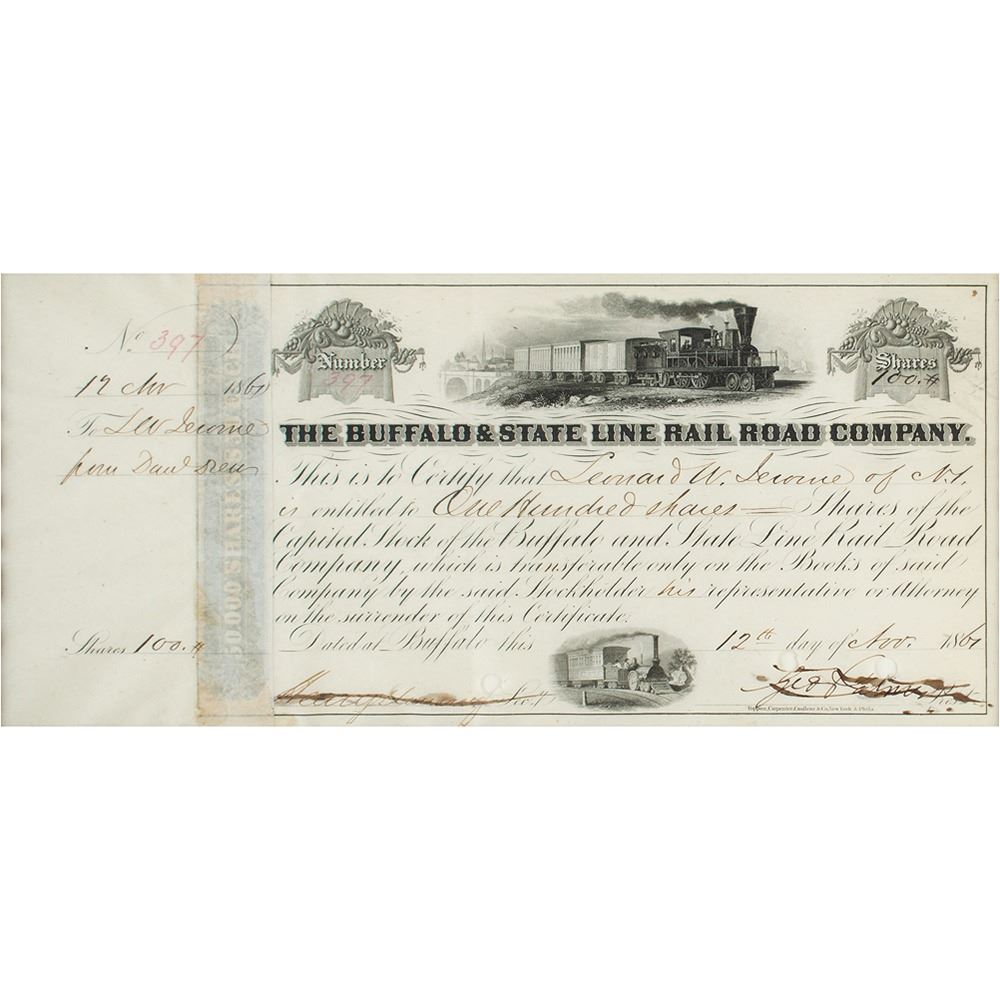 No. 397
12 Nov 1861
To L W Jerome
from Danl Drew
Shares 100.
Number
397
Shares
100.
THE BUFFALO & STATE LINE RAIL ROAD COMPANY.
This is to Certify that Leonard W. Jerome of N.Y.
is entitled to One Hundred shares Shares of the
Capital Stock of the Buffalo and State Line Rail Road
Company, which is transferable only on the Books of said
Company by the said Stockholder his representative or Attorney
on the surrender of this Certificate.
Dated at Buffalo this 12th day of Nov. 1861
Geo Palmer
Toppan, Carpenter, Casilear & Co. New York & Phila.